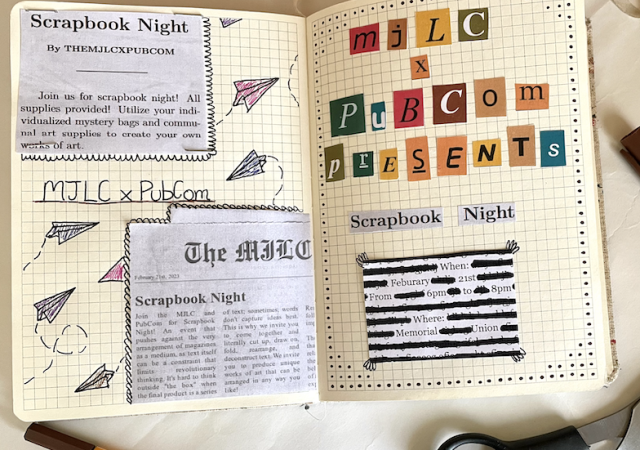 Scrapbook Night
By THEMJLCXPUBCOM
Join us for scrapbook night! All
supplies provided! Utilize your indi-
vidualized mystery bags and commu-
nal art supplies to create your own
works of art.
MJLC x PubCom
The MJLC
February 21st, 2023
Scrapbook Night
Join the MJLC and
PubCom for Scrapbook
Night! An event that
pushes against the very
arrangement of magazines
as a medium, as text itself
can be a constraint that
limits revolutionary
thinking. It's hard to think
outside "the box" when
the final product is a series
of text; sometimes, words
don't capture ideas best.
This is why we invite you
to come together and
literally cut up, draw on,
fold, rearrange, and
deconstruct text. We invite
you to produce unique
works of art that can be
arranged in any way you
like!
mjLC
x
PuBCom
prESENTS
Scrapbook Night
When:
Feburary 21st
From 6pm to 8pm
Where:
Memorial Union